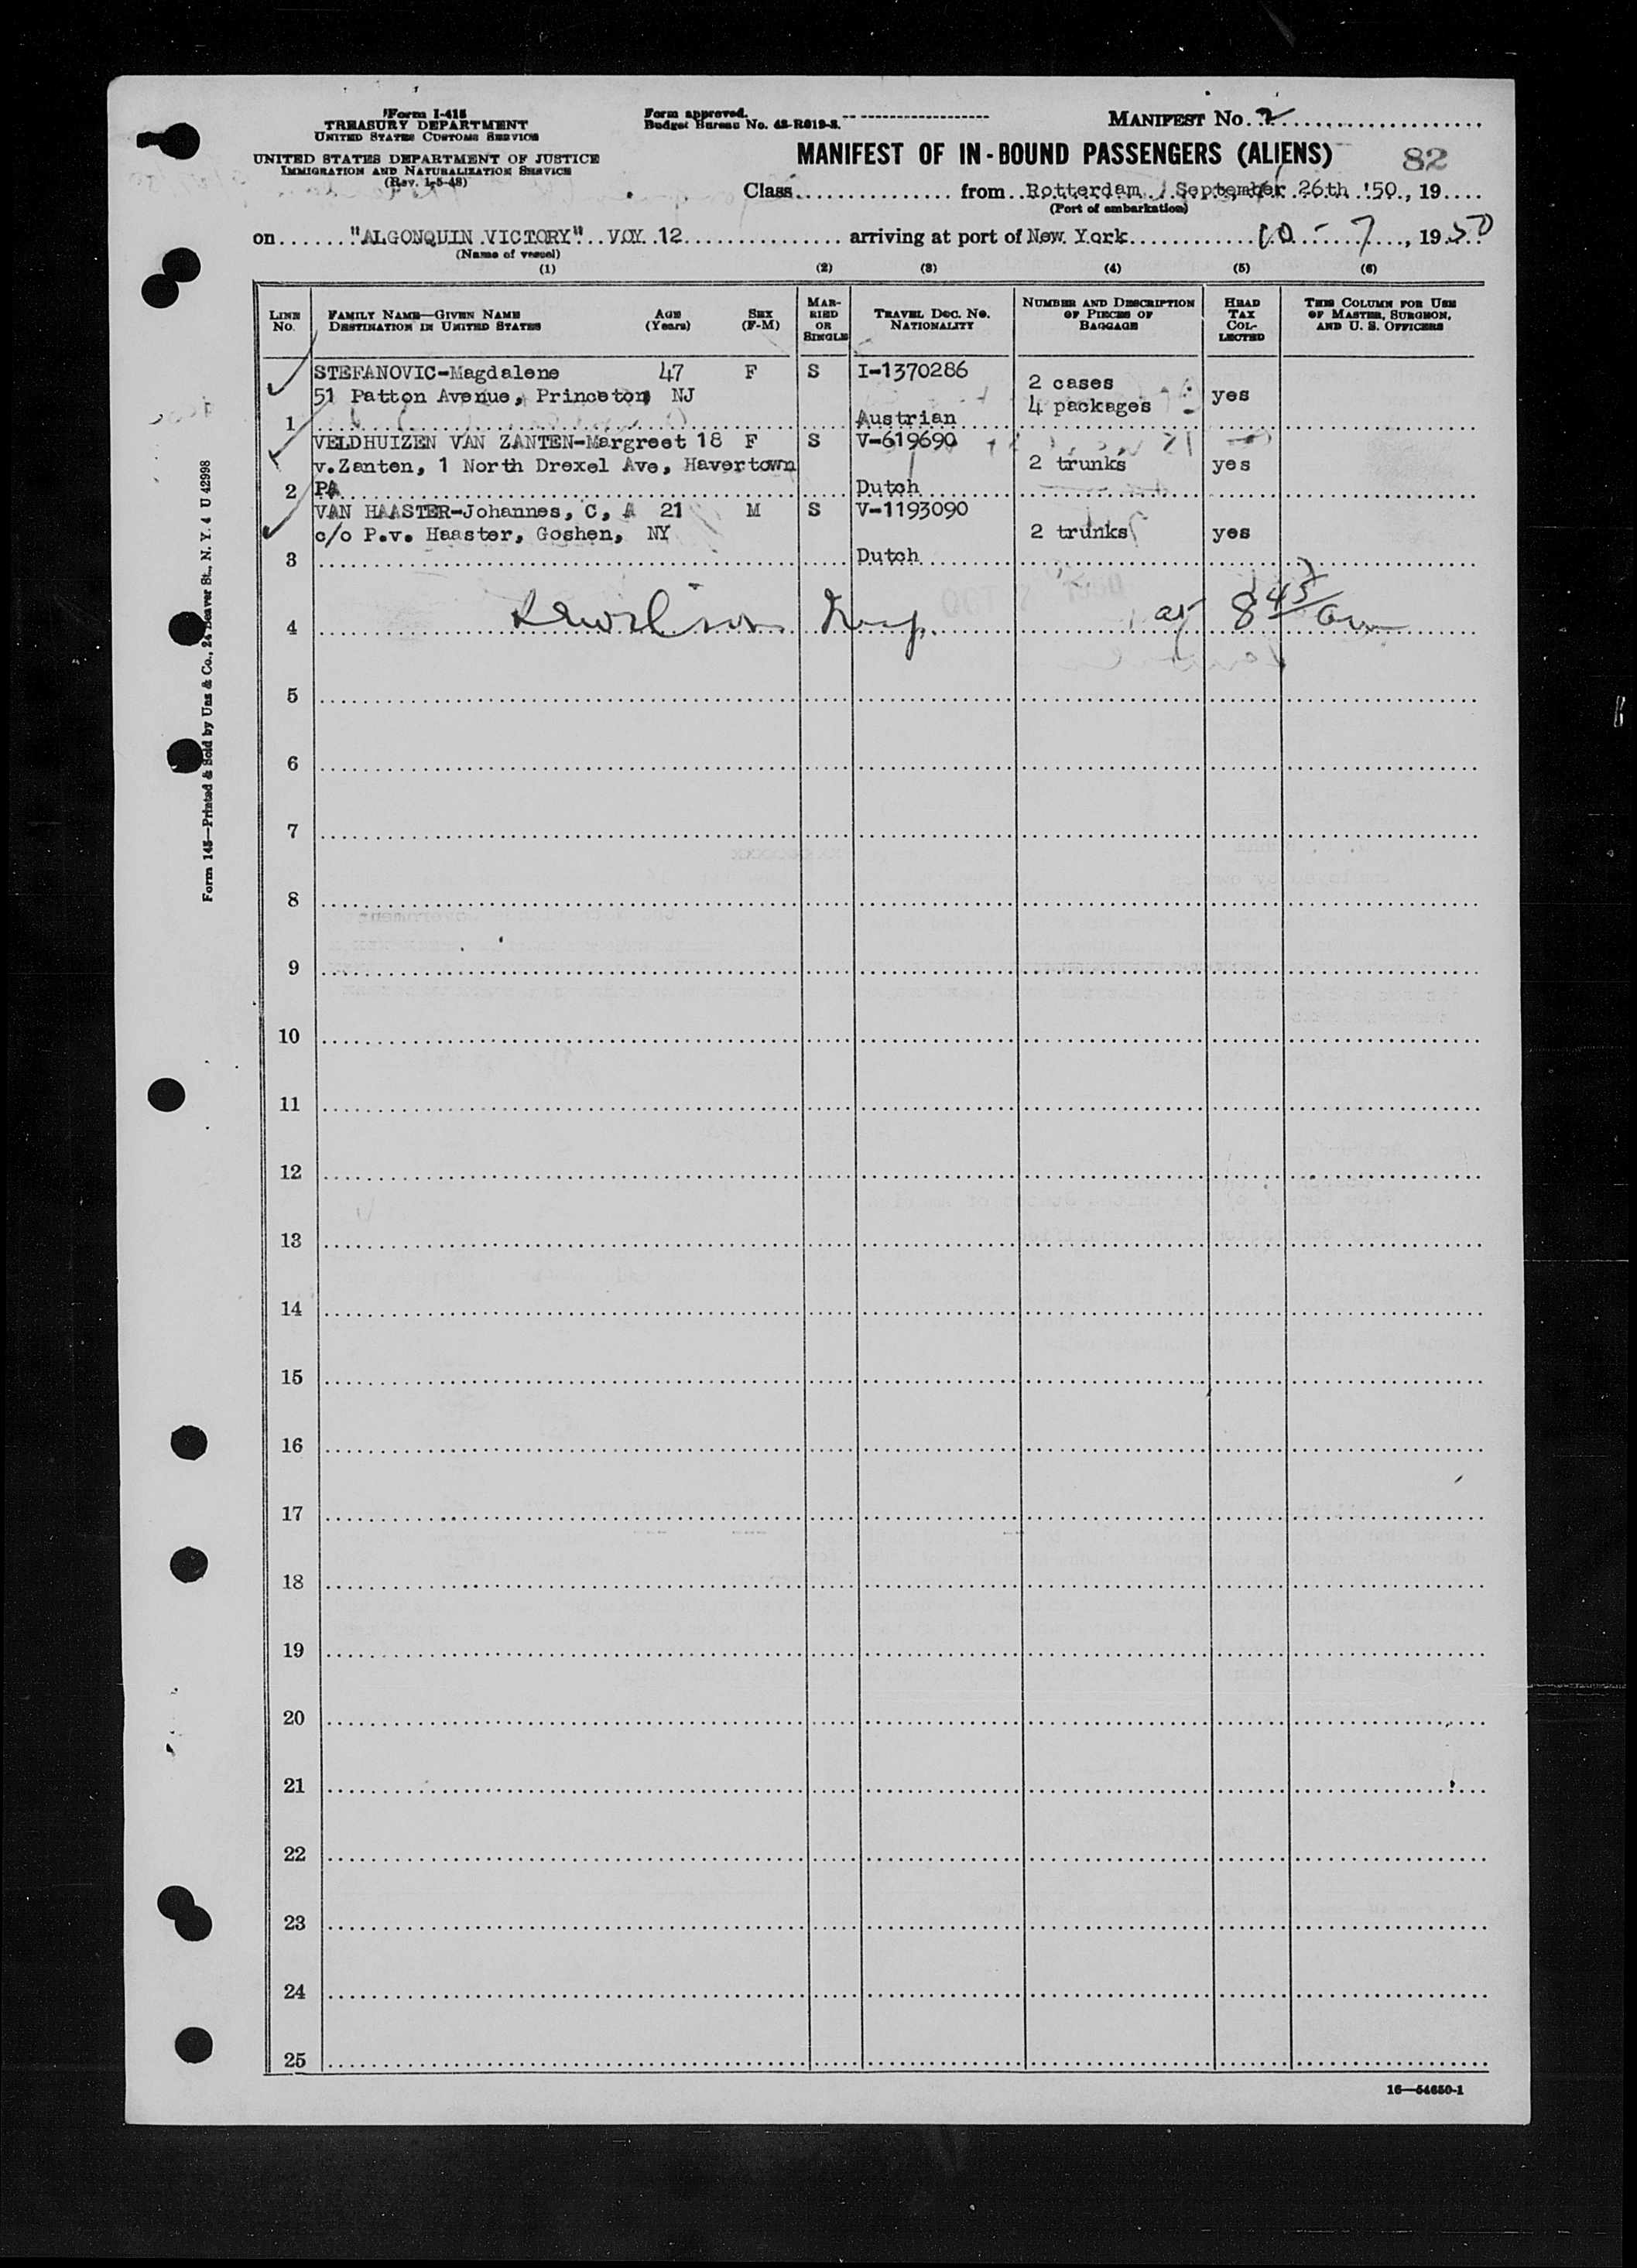 Form I-415
TREASURY DEPARTMENT
UNITED STATES CUSTOMS SERVICE
UNITED STATES DEPARTMENT OF JUSTICE
IMMIGRATION AND NATURALIZATION SERVICE
(Rev. 1-5-48)
Form approved.
Budget Bureau No. 43-R019-3.
MANIFEST No. 2
MANIFEST OF IN-BOUND PASSENGERS (ALIENS) 82
Class from Rotterdam, September 26th '50, 19
(Port of embarkation)
on "ALGONQUIN VICTORY" VOY 12 arriving at port of New York 10 - 7, 1950
(Name of vessel)
(1) (2) (3) (4) (5) (6)
LINE No. FAMILY NAME—GIVEN NAME DESTINATION IN UNITED STATES AGE (Years) SEX (F-M) MARRIED OR SINGLE TRAVEL DOC. NO. NATIONALITY NUMBER AND DESCRIPTION OF PIECES OF BAGGAGE HEAD TAX COLLECTED THIS COLUMN FOR USE OF MASTER, SURGEON, AND U. S. OFFICERS
STEFANOVIC-Magdalene 47 F S I-1370286
51 Patton Avenue, Princeton NJ 2 cases 4 packages yes
1 Austrian
VELDHUIZEN VAN ZANTEN-Margreet 18 F S V-619690
v.Zanten, 1 North Drexel Ave, Havertown 2 trunks yes
2 PA Dutch
VAN HAASTER-Johannes, C, A 21 M S V-1193090
c/o P.v. Haaster, Goshen, NY 2 trunks yes
3 Dutch
4 Insp. at 8 45/am
5
6
7
8
9
10
11
12
13
14
15
16
17
18
19
20
21
22
23
24
25
16—54650-1
Form 145—Printed & Sold by Unz & Co., 24 Beaver St., N. Y. 4 U 42998